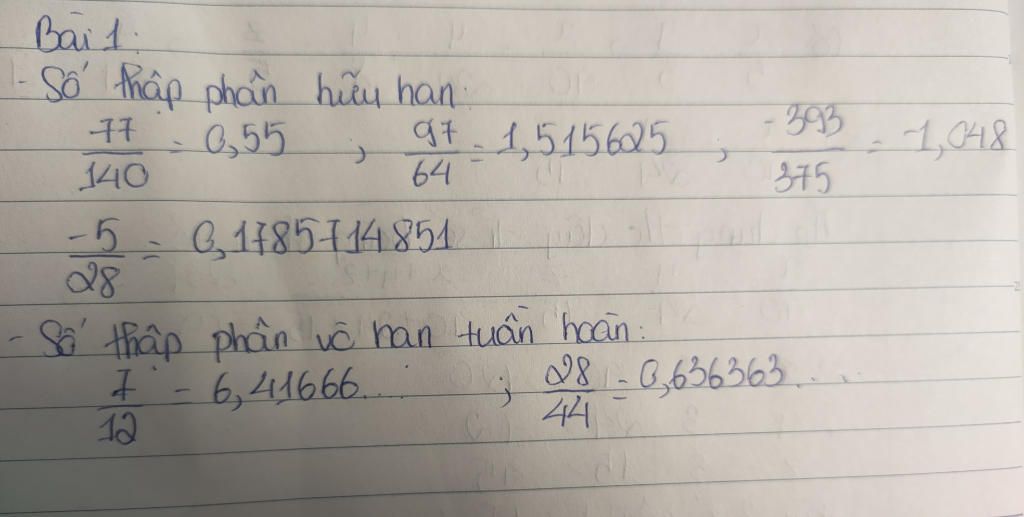 Bài 1:
- Số thập phân hữu hạn:
77/140 = 0,55 ; 97/64 = 1,515625 ; -393/375 = -1,048
-5/28 = 0,1785714851
- Số thập phân vô hạn tuần hoàn:
7/12 = 6,41666.... ; 28/44 = 0,636363.....